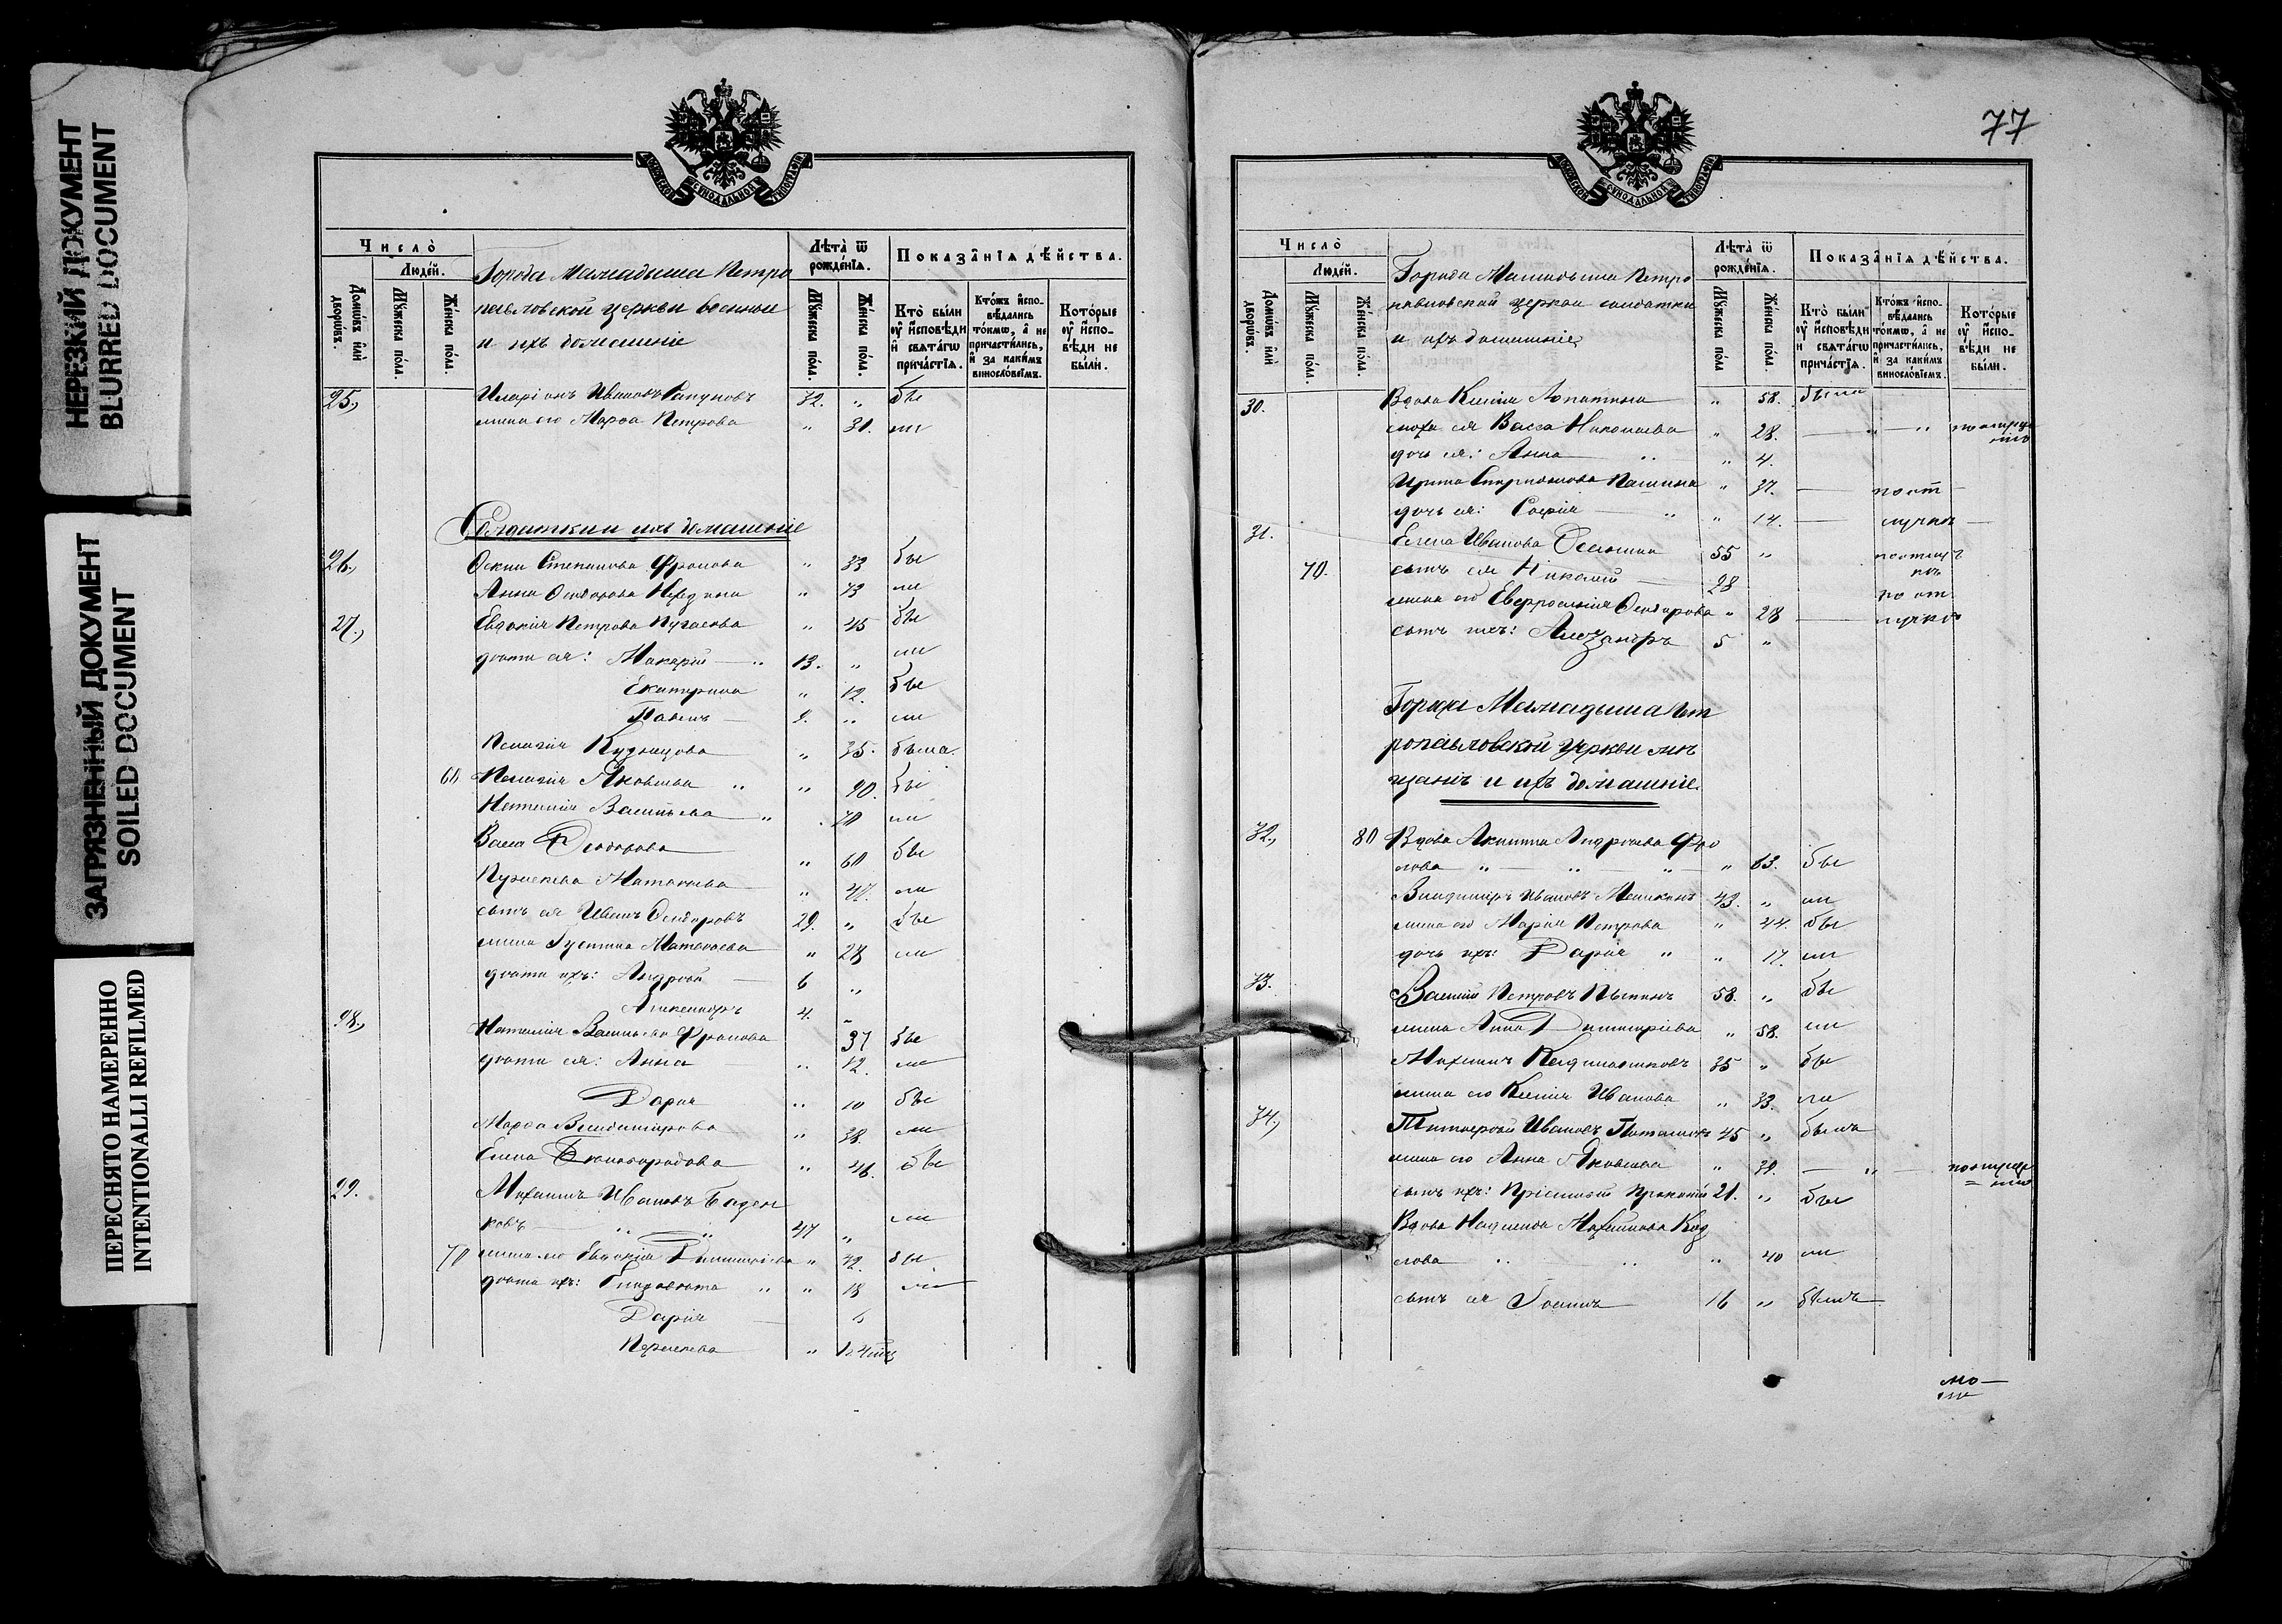 НЕРЕЗКИЙ ДОКУМЕНТ
BLURRED DOCUMENT
ЗАГРЯЗНЕННЫЙ ДОКУМЕНТ
SOILED DOCUMENT
ПЕРЕСНЯТО НАМЕРЕННО
INTENTIONALLI REFILMED
МОСКОВСКОЙ СѴНОДАЛЬНОЙ ТИПОГРАФІИ
Число̀
Людéй.
Домѡвъ и҆лѝ дворѡвъ.
Мꙋжеска пóла.
Жéнска пóла.
Города Мамадыша Петро
павловской церкви военные
и ихъ домашніе
Лѣта̀ ѿ рождéнїѧ.
Мꙋжеска пóла.
Жéнска пóла.
Показа̑нїѧ дѣ́йства.
Кто̀ бы́ли ᲂу҆ и҆сповѣди и҆ свѧта́гѡ прича́стїѧ.
Кто́жъ и҆спо- вѣдались то́кмѡ, а҆ не причасти́лись, и҆ за каки́мъ винословїемъ.
Кото́рые ᲂу҆ и҆спо- вѣди не бы́ли.
25., Иларіонъ Ивановъ Сапуновъ 32. " бы
жена его Марѳа Петрова " 31. ли
Солдатки и ихъ домашніе
26., Степанова Фролова " 33 бы
Анна Ѳеодорова " 73 ли
27., Евдокія Петрова Пугасова " 45 бы
дѣти ея: Макарій — " 13. " ли
Екатерина " 12. бы
Павелъ — 9. " ли
Пелагія Кузнецова " 35. была.
60 Пелагія Яковлева " " 90. бы
Наталія Васильева " 70 ли
Васса Ѳеодорова " 60 бы
Матвѣева — " 47. ли
сынъ ея Иванъ Ѳеодоровъ 29. " бы
жена Густина Матвѣева " 28 ли
дѣти ихъ: Андрей — 6 "
Александръ 4. "
28., Наталія Васильева Фролова 37 бы
дѣти ея: Анна " 12. ли
Дарія " 10 бы
Марѳа Владимирова " 38 ли
Елена " 46. бы
29. Михаилъ Ивановъ
ковъ — " " 47 " ли
70 жена его Евдокія Димитріева " 42. бы
дѣти ихъ: Елизавета " " 18 ли
Дарія — 6
Параскева "
77
МОСКОВСКОЙ СѴНОДАЛЬНОЙ ТИПОГРАФІИ
Число̀
Людéй.
Домѡвъ и҆лѝ дворѡвъ.
Мꙋжеска пóла.
Жéнска пóла.
Города Мамадыша Петро
павловской церкви солдатки
и ихъ домашніе
Лѣта̀ ѿ рождéнїѧ.
Мꙋжеска пóла.
Жéнска пóла.
Показа̑нїѧ дѣ́йства.
Кто̀ бы́ли ᲂу҆ и҆сповѣди и҆ свѧта́гѡ прича́стїѧ.
Кто́жъ и҆спо- вѣдались то́кмѡ, а҆ не причасти́лись, и҆ за каки́мъ винословїемъ.
Кото́рые ᲂу҆ и҆спо- вѣди не бы́ли.
30. Вдова Ксенія Лопатина " 58. была
сноха ея Васса Николаева " 28. — " — "
дочь ея: Анна " " 4.
Ирина Спиридонова Пашина " 37. — по от —
дочь ея: Софія — " " 14. — лучкѣ —
31. Елена Ивановa 55 "
70. сынъ ея Николай — 28
жена его Евфросинія Ѳеодорова " 28 — по от лучкѣ
сынъ ихъ: Александръ 5 "
Города Мамадыша Пет
ропавловской церкви мѣ
щане и ихъ домашніе.
32., 80 Вдова Акилина Андреева Фро
лова " — " — " — " 63. бы
Владимиръ Ивановъ 43. " ли
жена его Марія Петрова " 44. бы
дочь ихъ: Дарія " " 17. ли
33. Василій Петровъ 58. " бы
жена Анна Димитріева " 58. ли
Михаилъ 35 " бы
жена его Ксенія Иванова " 33. ли
34., Ивановъ 45 " былъ
жена его Анна Яковлева " 39. — " —
сынъ ихъ: 21. " бы
Вдова Надежда Михайлова Коз
лова " " " 40 ли
сынъ ея Іоаннъ — 16 " былъ